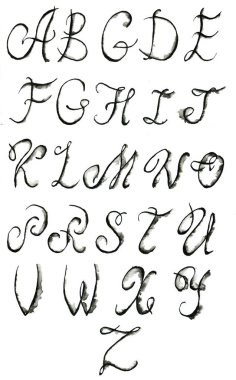 A B C D E
F G H I J
K L M N O
P R S T U
V W X Y
Z